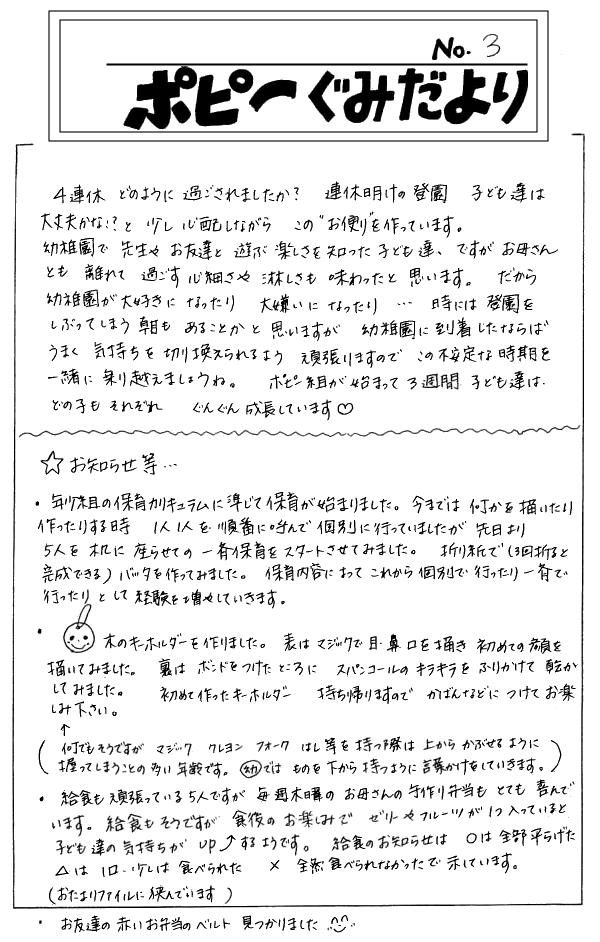 No. 3
ポピーぐみだより
4連休 どのように 過ごされましたか? 連休明けの登園 子ども達は
大丈夫かな!?と 少し心配しながら この"お便り"を作っています。
幼稚園で 先生や お友達と 遊ぶ 楽しさを知った 子ども達、ですが お母さん
とも 離れて 過ごす 心細さや 淋しさも 味わったと 思います。 だから
幼稚園が大好きに なったり 大嫌いに なったり … 時には 登園を
しぶってしまう 朝も あることかと 思いますが 幼稚園に到着したならば
うまく 気持ちを 切り換えられるよう 頑張りますので この不安定な時期を
一緒に 乗り越えましょうね。 ポピー組が始まって 3週間 子ども達は
どの子も それぞれ ぐんぐん 成長しています♡
☆ お知らせ等…
・ 年少組の保育カリキュラムに準じて 保育が始まりました。今までは 何かを描いたり
作ったりする時 1人1人を 順番に呼んで 個別に行っていましたが 先日より
5人を 机に 座らせての 一斉保育を スタートさせてみました。 折り紙で(3回折ると
完成できる) バッタを作ってみました。 保育内容によって これから 個別で 行ったり 一斉で
行ったり として 経験を増やしていきます。
・ 木のキーホルダーを作りました。表は マジックで 目・鼻 口を 描き 初めての 顔を
描いてみました。 裏は ボンドをつけたところに スパンコールの キラキラを ふりかけて 乾か
してみました。 初めて作ったキーホルダー 持ち帰りますので かばんなどに つけて お楽
しみ下さい。
↑
(何でもそうですが マジック クレヨン フォーク はし等を 持つ際は 上から かぶせるように
握ってしまうことの 多い 年齢です。 幼では ものを下から 持つように 言葉かけをしていきます。)
・ 給食も 頑張っている 5人ですが 毎週木曜の お母さんの 手作り弁当も とても 喜んで
います。給食もそうですが 食後の お楽しみで ゼリーや フルーツが 1つ 入っていると
子ども達の 気持ちが UP↗するようです。 給食のお知らせは ○は 全部 平らげた
△は 1口・少しは 食べられた × 全然 食べられなかった で 示しています。
(おたよりファイルに 挟んでいます)
・ お友達の 赤いお弁当のベルト 見つかりました